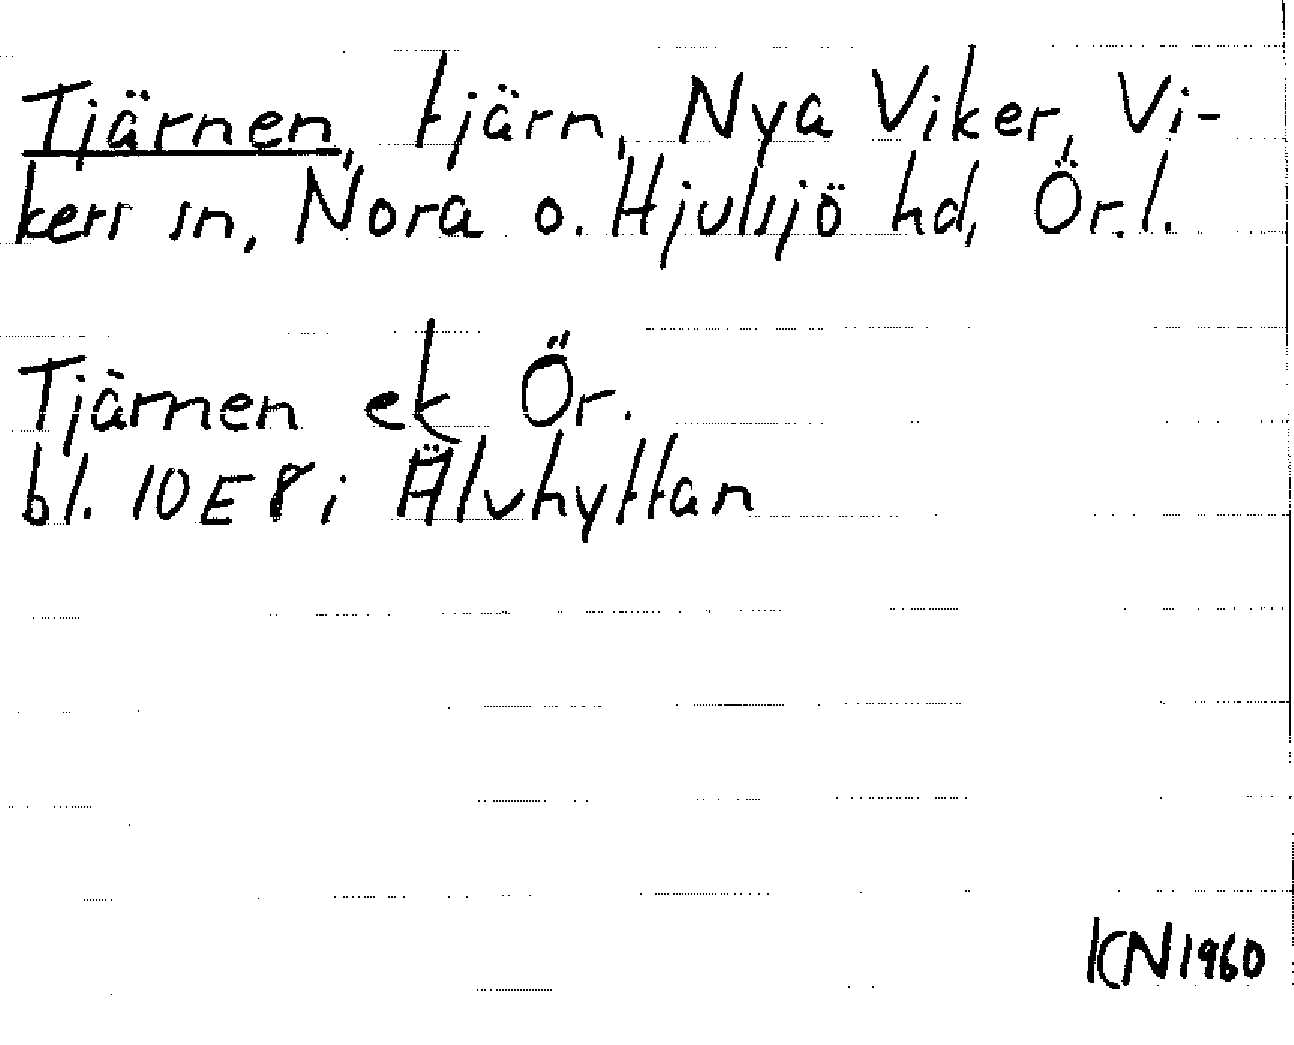 Tjärnen, tjärn, Nya Viker, Vi-
kers sn, Nora o. Hjulsjö hd, Ör.l.
Tjärnen ek Ör.
bl. 10E8i Älvhyttan
KN1960